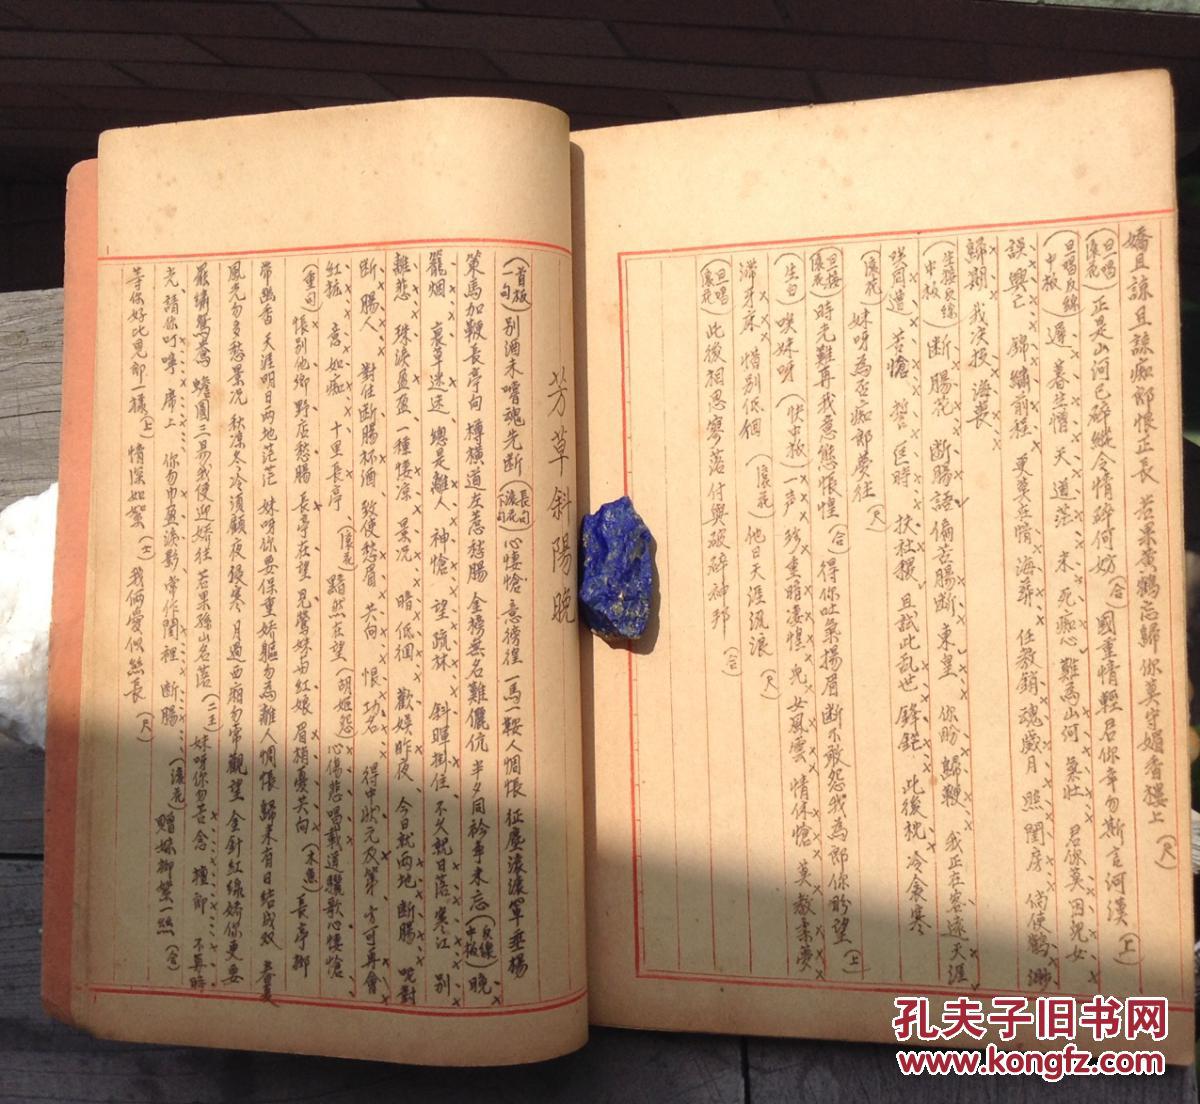 嬌且諒且諒痴郎恨正長 若果黃鶴忘歸你莫守媚香樓上(尺)
(旦唱滾花)正是山河已碎縱令情碎何妨(合)國重情輕君你幸勿斯言河漢(上)
(旦唱反線中板)遲暮生憎 天道茫 未死痴心難為山河氣壯 君你莫因兒女
誤興亡 錦繡前程 更莫忘情海葬 任教銷魂歲月 照閨房 倘使鶴渺
歸期 我決投海喪
(生接反線中板)斷腸花 斷腸語 偏苦腸斷東皇 你盼歸鞭 我正在客途天涯
咲同遭 苦愴 誓匡時 扶社稷 且試此亂世鋒鋩 此後枕冷衾寒
(滾花)妹呀為否痴郎夢往(尺)
(旦接滾花)時光難再我意態悵惶(合)得你吐氣揚眉斷不敢怨我為郎你盼望(上)
(生白)唉妹呀(快中板)一声珍重暗淒惶 兒女風雲情休愴 莫教柔夢
滯牙床 惜別低徊(滾花)他日天涯流浪(尺)
(旦唱滾花)此後相思寥落付與破碎神邦(合)
芳草斜陽晚
(首板一句)別酒未嚐魂先斷(長句滾花下句)心悽愴意徬徨 一馬一鞍人惆悵 征塵滾滾罩垂楊
策馬加鞭長亭向 樽橫道左惹愁腸 金榜無名難儷伉 半夕同衾爭未忘(反線中板)晚
籠烟 衰草迷迷 總是離人神愴 望疏林 斜暉掛住 不久就日落寒江 別
離悲 珠淚盈盈 一種悽涼景况 暗低徊 歡娛昨夜 今日就兩地断腸 咜對
断腸人 對住断腸杯酒 致使愁眉共向 恨功名 得中狀元及第 方可再會
紅粧 意如痴 十里長亭(滾花)黯然在望(胡姬怨)心傷悲唱載道驪歌心悽愴
(重句)悵別他鄉 野店愁腸 長亭在望 見鶯妹與紅娘 眉梢憂共向(木魚)長亭柳
帶幽香 天涯明日两地茫茫 妹呀你要保重嬌軀勿為離人惆悵 歸來有日結成双
風光勿多愁景况 秋凉冬冷須顧夜張寒 月過西廂勿常觀望 金針紅線嬌你更要
羅繡鴛鴦 蟾圓三易我便迎嬌往 若果孫山名落(二王)妹呀你勿苦念檀郎 不再時
光 請你叮嚀席上 你勿巾盈淚影常作閨裡断腸(滾花)贈妹柳縈一絲(合)
等你好比見郎一樣(上)情深如絮(士)我俩愛似絲長(尺)
孔夫子旧书网
www.kongfz.com